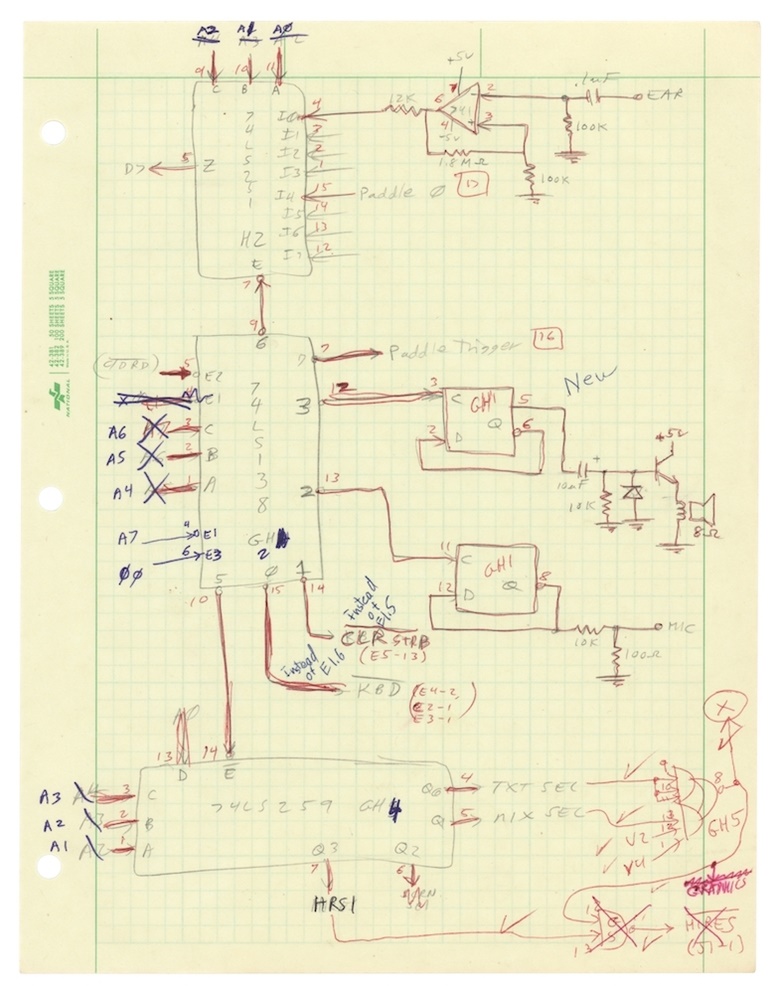 A2 A1 A0
9 10 11
C B A
+5V
7 2
6 741
4 3
-5V
.1uF
EAR
12K
100K
1.8MΩ
100K
7
4
L
S
2
5
1
H2
I0 4
I1 3
I2 2
I3 1
I4 15
Paddle 0
13
I5 14
I6 13
I7 12
D7 5 Z
E
7
9
6
7
Paddle Trigger
16
New
5 E2
E1
A6 3 C
A5 2 B
A4 1 A
A7 4 E1
00 6 E3
7
4
L
S
1
3
8
GH
2
3 12
2 13
3 C GH1 5
2 D Q 6
+5V
10uF +
10K
8Ω
11 C GH1
12 D Q 8
10K
MIC
100Ω
5 0 1
10 15 14
instead of E1.5
CLR STRB
(E5-13)
instead of E1.6
KBD (E4-2,
E2-1
E3-1)
X
13 14
D E
A3 3 C
A2 2 B
A1 1 A
74LS259 GH4
Q6 4 TXT SEL
Q 5 MIX SEL
V2
V4
8
GH5
Q3 Q2
7 6
HRS1
GRAPHICS
HIRES
(J1-1)
NATIONAL